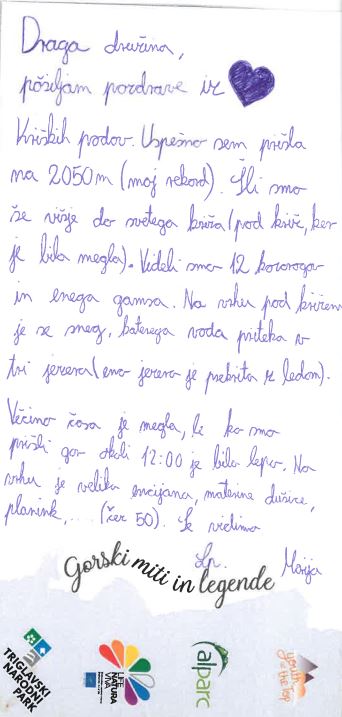 Draga družina,
pošiljam pozdrave iz
Kriških podov. Uspešno sem prišla
na 2050m (moj rekord). Šli smo
še višje do svetega križa (pod križ, ker
je bila megla). Videli smo 12 kozorogov
in enega gamsa. Na vrhu pod križem
je še sneg, katerega voda priteka v
tri jezera (eno jezero je prekrito z ledom).
Večino časa je megla, le ko smo
prišli gor okoli 12:00 je bilo lepo. Na
vrhu je veliko encijana, materine dušice,
planink, ... (čez 50). Se vidimo
Lp. Marija
Gorski miti in legende
TRIGLAVSKI
NARODNI
PARK
LIFE
NATURA
VIVA
alparc
youth
at the top